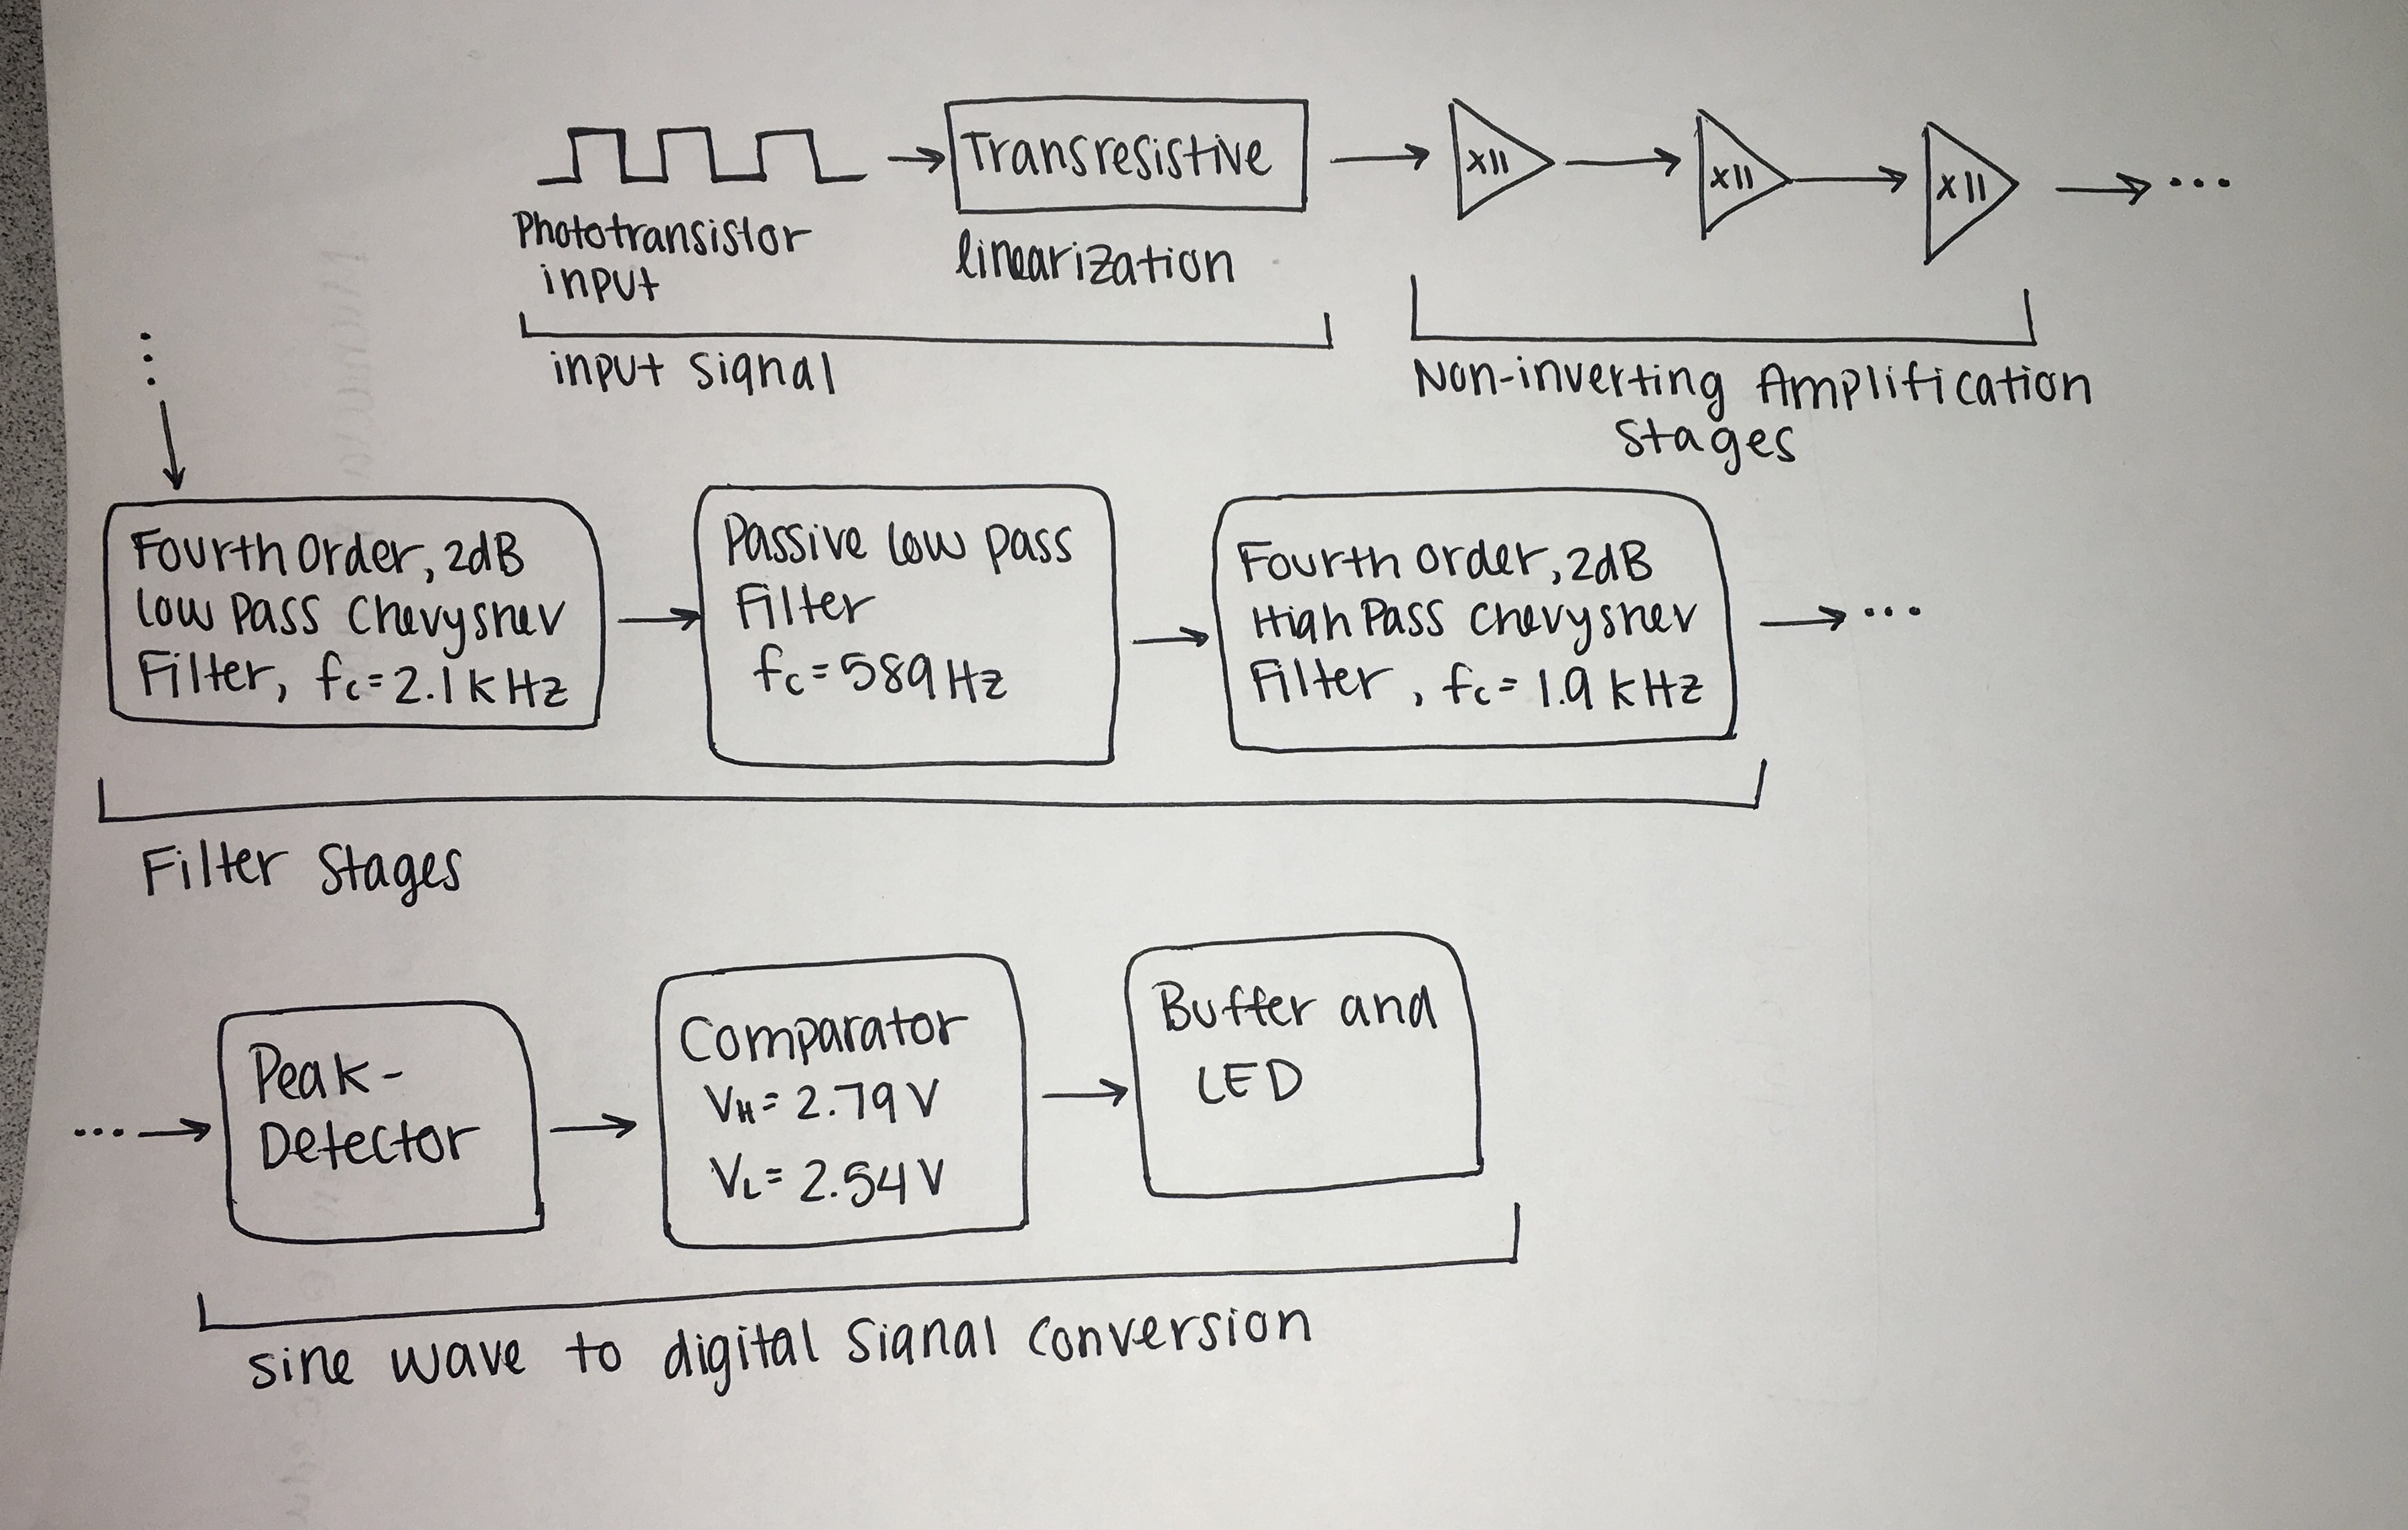 Transresistive
x11
x11
x11
Phototransistor
input
linearization
input signal
Non-inverting Amplification
Stages
Fourth Order, 2dB
Low Pass Chevyshev
Filter, fc = 2.1 kHz
Passive Low pass
Filter
fc = 589 Hz
Fourth Order, 2dB
High Pass Chevyshev
Filter, fc = 1.9 kHz
Filter Stages
Peak-
Detector
Comparator
VH = 2.79 V
VL = 2.54 V
Buffer and
LED
sine wave to digital signal conversion